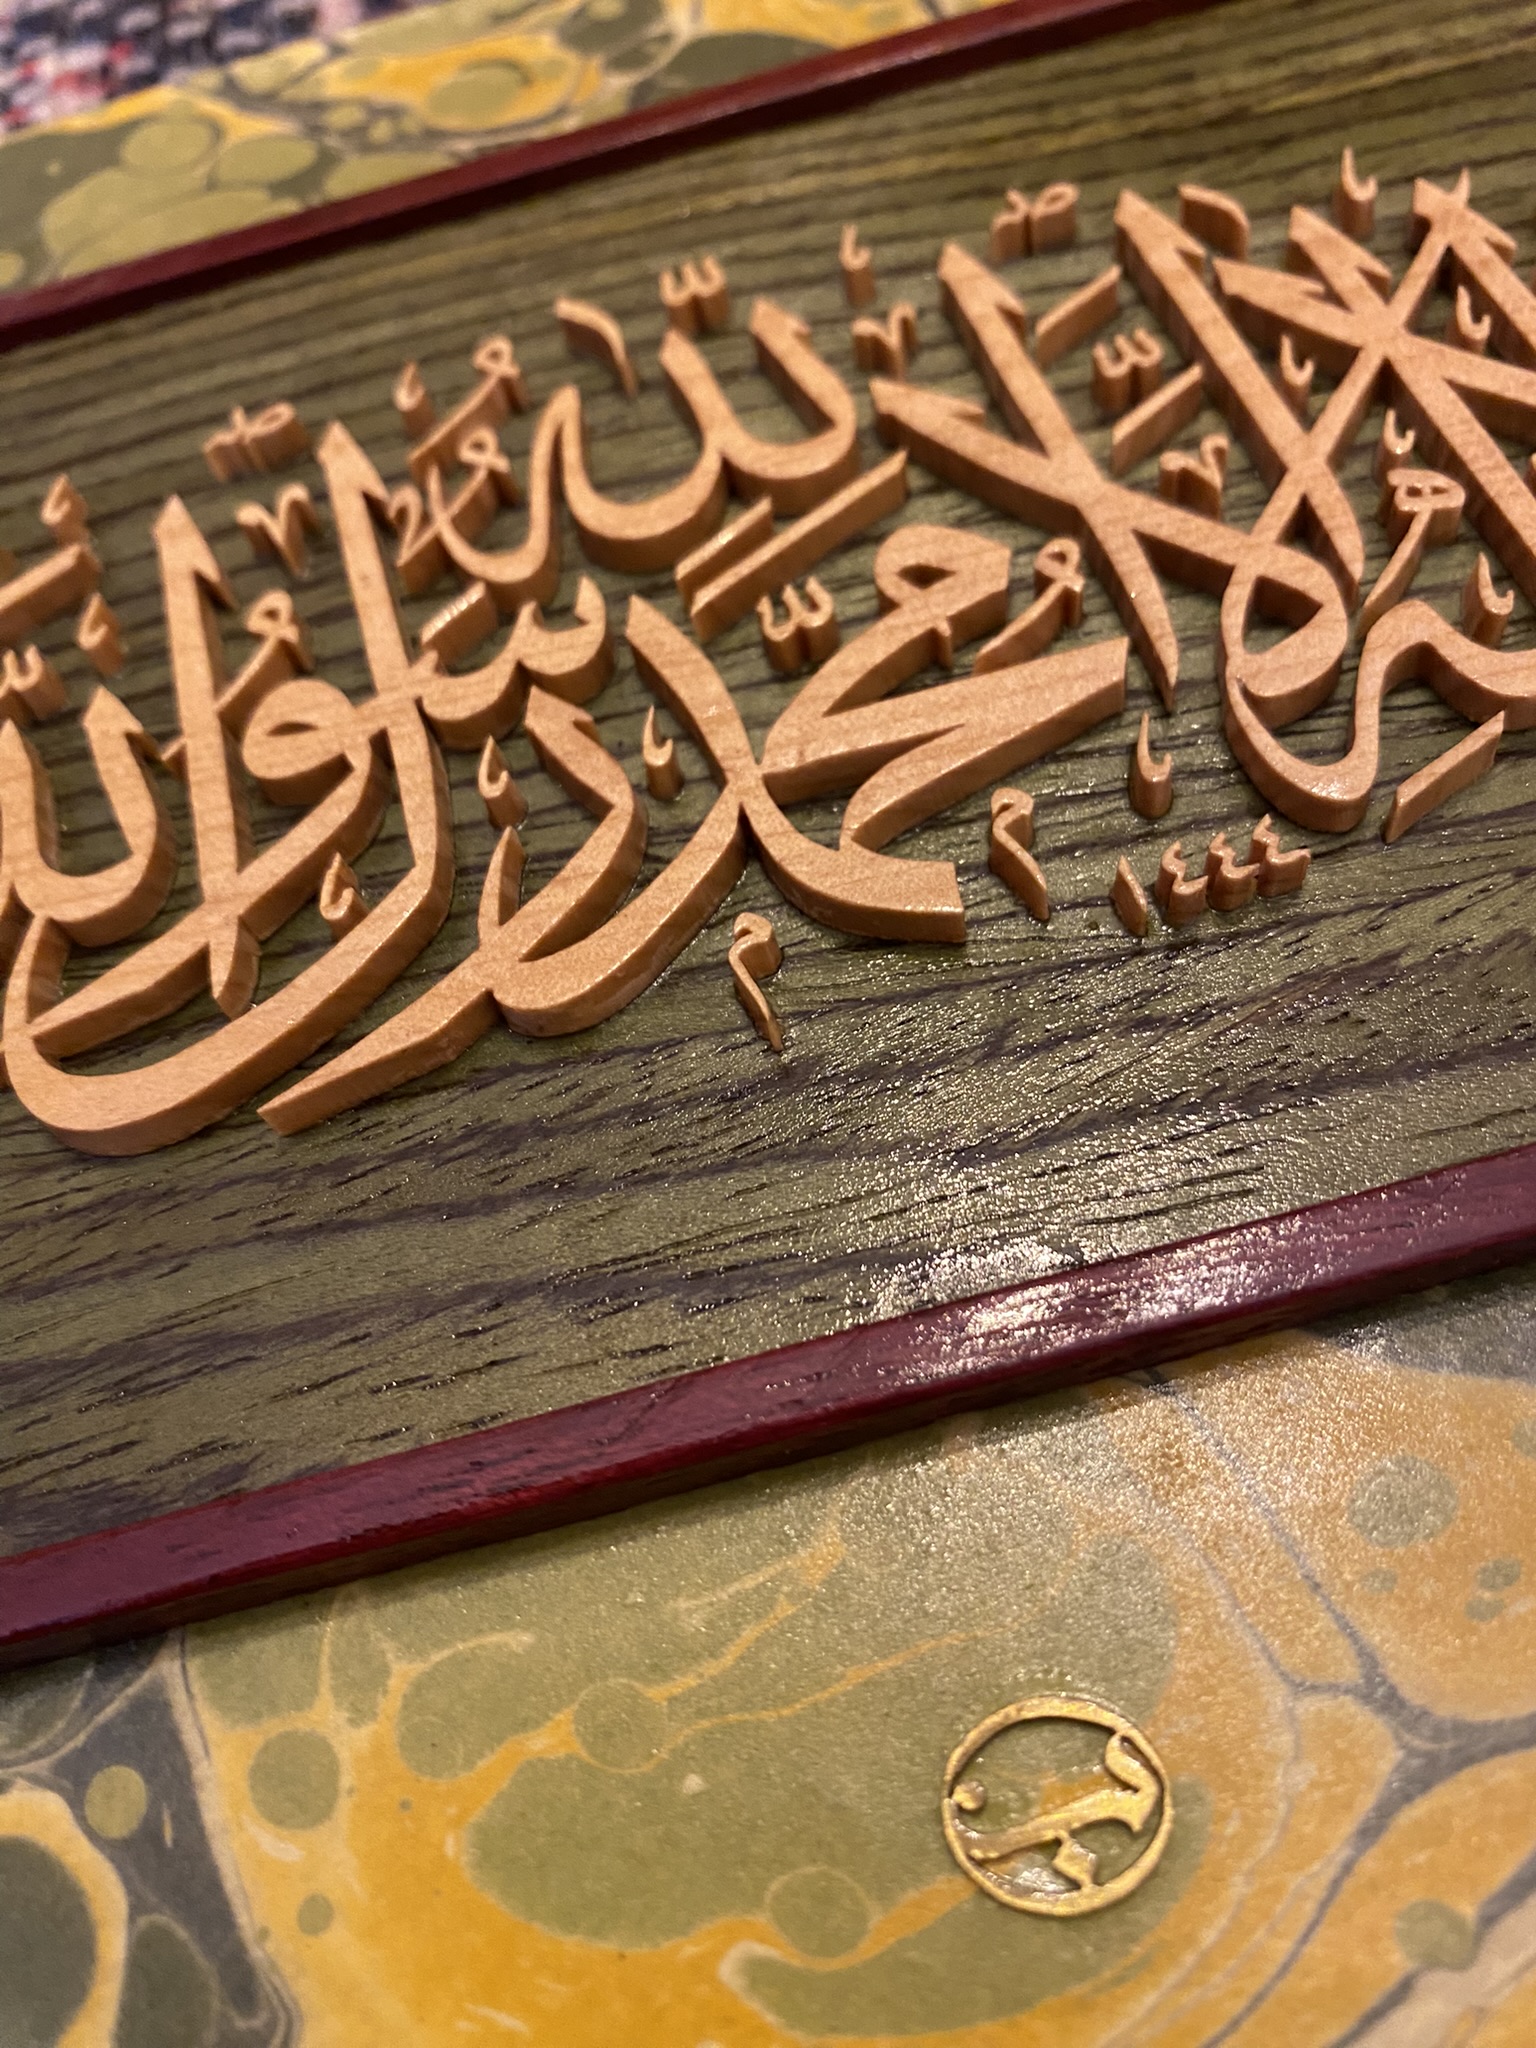 لا إله إلا الله
محمد رسول الله
١٤٤٤